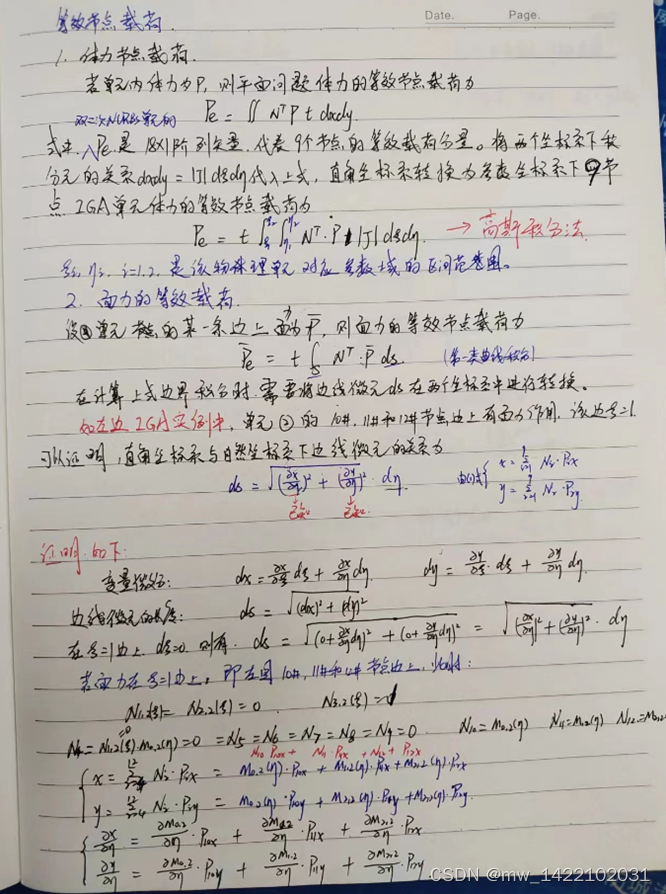 等效节点载荷.
Date. Page.
1. 体力节点载荷.
若单元内体力为P, 则平面问题体力的等效节点载荷为
双二次NURBS单元的 Pe = ∬ NᵀP t dxdy.
式中, Pe是18×1阶列矢量, 代表9个节点的等效载荷分量。将两个坐标系下积
分元的关系dxdy = |J| dξdη代入上式, 直角坐标系转换为参数坐标系下9节
点IGA单元体力的等效节点载荷为
Pe = t ∫ξ₁^ξ₂ ∫η₁^η₂ Nᵀ·P |J| dξdη. → 高斯积分法.
ξi, ηi, i=1,2. 是该物理单元对应参数域的区间范围。
2. 面力的等效载荷.
设单元的某一条边上面力为P̄, 则面力的等效节点载荷为
P̄e = t ∫s Nᵀ·P̄ ds. (第一类曲线积分)
在计算上式边界积分时, 需要将边线微元ds在两个坐标系中进行转换。
如左边IGA实例中, 单元②的10#, 11#和12#节点边上有面力作用, 该边ξ=1.
可以证明, 直角坐标系与自然坐标系下边线微元的关系为
ds = √((∂x/∂η)² + (∂y/∂η)²)·dη { x = Σ Ni·Pix
y = Σ Ni·Piy
证明如下:
变量微分: dx = ∂x/∂ξ dξ + ∂x/∂η dη. dy = ∂y/∂ξ dξ + ∂y/∂η dη.
边线微元的长度: ds = √((dx)² + (dy)²)
在ξ=1边上, dξ=0, 则有 ds = √((0+∂x/∂η dη)² + (0+∂y/∂η dη)²) = √((∂x/∂η)²+(∂y/∂η)²)·dη
若面力在ξ=1边上, 即左图10#, 11#和12#节点边上, 此时:
N1,2(ξ) = N2,2(ξ) = 0. N3,2(ξ) = 1
N4 = N1,2(ξ)·M0,2(η) = 0 = N5 = N6 = N7 = N8 = N9 = 0. N10 = M0,2(η) N11 = M1,2(η) N12 = M2,2
N10·P10x + N11·P11x + N12·P12x
{ x = Σ Ni·Pix = M0,2(η)·P10x + M1,2(η)·P11x + M2,2(η)·P12x
y = Σ Ni·Piy = M0,2(η)·P10y + M1,2(η)·P11y + M2,2(η)·P12y
{ ∂x/∂η = ∂M0,2/∂η·P10x + ∂M1,2/∂η·P11x + ∂M2,2/∂η·P12x
∂y/∂η = ∂M0,2/∂η·P10y + ∂M1,2/∂η·P11y + ∂M2,2/∂η·P12y
CSDN @mw_1422102031